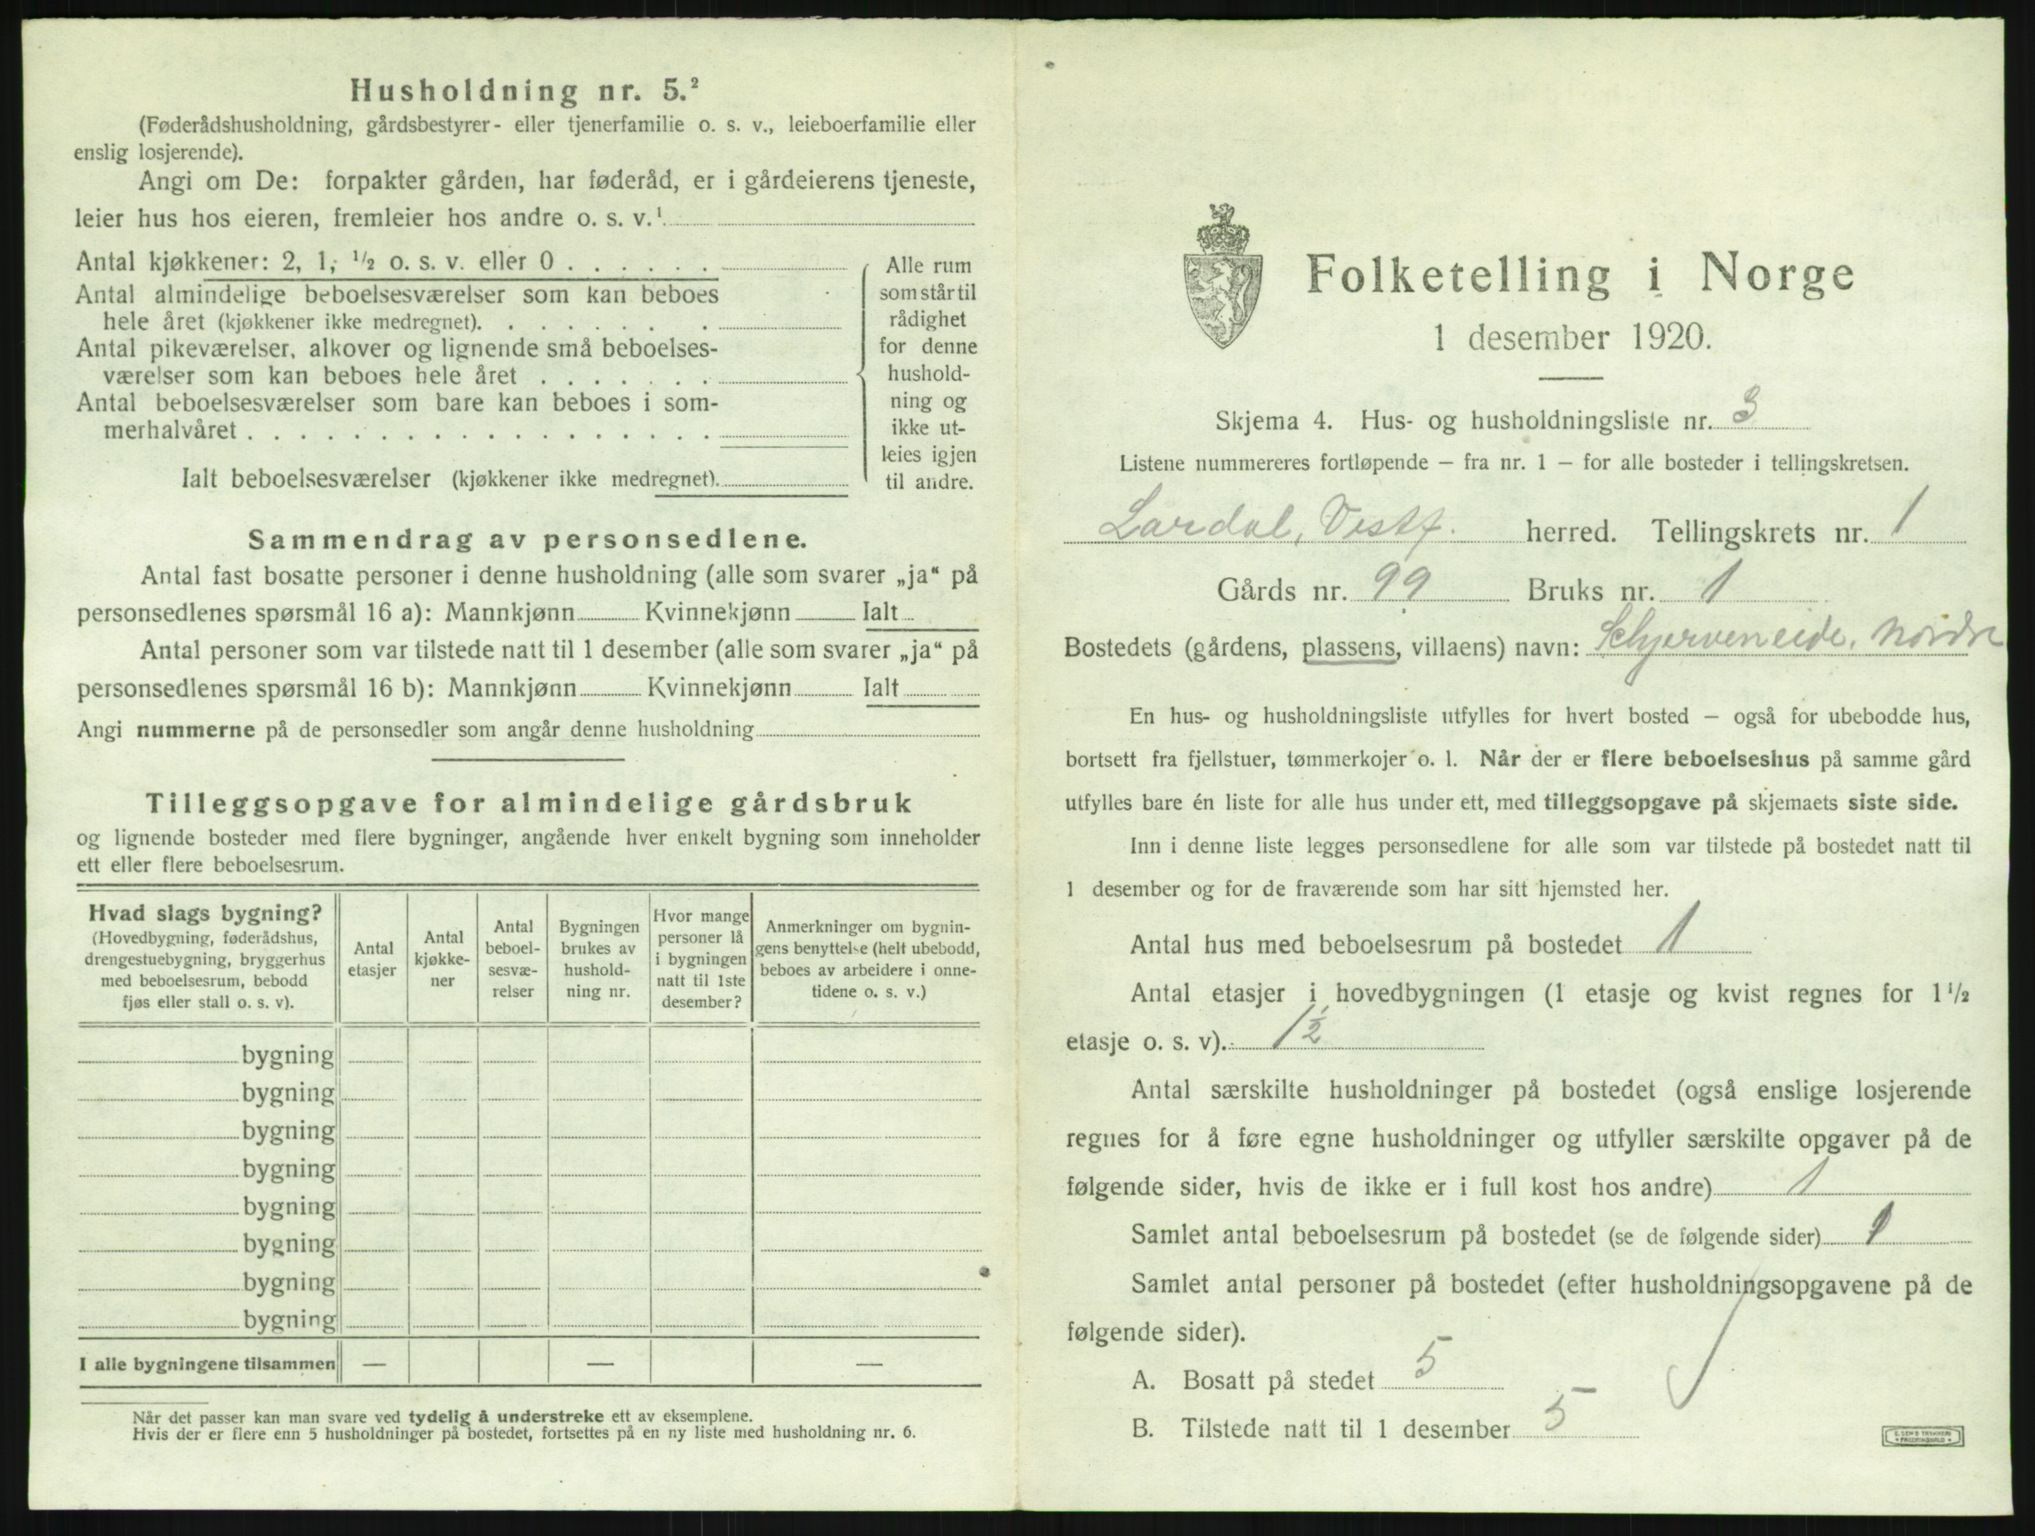 Husholdning nr. 5.²
(Føderådshusholdning, gårdsbestyrer- eller tjenerfamilie o. s. v., leieboerfamilie eller
enslig losjerende).
Angi om De: forpakter gården, har føderåd, er i gårdeierens tjeneste,
leier hus hos eieren, fremleier hos andre o. s. v.¹
Antal kjøkkener: 2, 1, ½ o. s. v. eller 0 . . . . . .
Antal almindelige beboelsesværelser som kan beboes
hele året (kjøkkener ikke medregnet). . . . . . . .
Antal pikeværelser, alkover og lignende små beboelses-
værelser som kan beboes hele året . . . . . . .
Antal beboelsesværelser som bare kan beboes i som-
merhalvåret . . . . . . . . . . . . . . . . . .
Ialt beboelsesværelser (kjøkkener ikke medregnet).
Alle rum
som står til
rådighet
for denne
hushold-
ning og
ikke ut-
leies igjen
til andre.
Sammendrag av personsedlene.
Antal fast bosatte personer i denne husholdning (alle som svarer „ja“ på
personsedlenes spørsmål 16 a): Mannkjønn Kvinnekjønn Ialt
Antal personer som var tilstede natt til 1 desember (alle som svarer „ja“ på
personsedlenes spørsmål 16 b): Mannkjønn Kvinnekjønn Ialt
Angi nummerne på de personsedler som angår denne husholdning
Tilleggsopgave for almindelige gårdsbruk
og lignende bosteder med flere bygninger, angående hver enkelt bygning som inneholder
ett eller flere beboelsesrum.
Hvad slags bygning?
(Hovedbygning, føderådshus,
drengestuebygning, bryggerhus
med beboelsesrum, bebodd
fjøs eller stall o. s. v).
Antal
etasjer
Antal
kjøkke-
ner
Antal
beboel-
sesvæ-
relser
Bygningen
brukes av
hushold-
ning nr.
Hvor mange
personer lå
i bygningen
natt til 1ste
desember?
Anmerkninger om bygnin-
gens benyttelse (helt ubebodd,
beboes av arbeidere i onne-
tidene o. s. v.)
bygning
bygning
bygning
bygning
bygning
bygning
bygning
bygning
I alle bygningene tilsammen — — —
Når det passer kan man svare ved tydelig å understreke ett av eksemplene.
Hvis der er flere enn 5 husholdninger på bostedet, fortsettes på en ny liste med husholdning nr. 6.
Folketelling i Norge
1 desember 1920.
Skjema 4. Hus- og husholdningsliste nr. 3
Listene nummereres fortløpende — fra nr. 1 — for alle bosteder i tellingskretsen.
Lardal, Vestf. herred. Tellingskrets nr. 1
Gårds nr. 99 Bruks nr. 1
Bostedets (gårdens, plassens, villaens) navn: Schjerveneide, Nordre
En hus- og husholdningsliste utfylles for hvert bosted — også for ubebodde hus,
bortsett fra fjellstuer, tømmerkojer o. l. Når der er flere beboelseshus på samme gård
utfylles bare én liste for alle hus under ett, med tilleggsopgave på skjemaets siste side.
Inn i denne liste legges personsedlene for alle som var tilstede på bostedet natt til
1 desember og for de fraværende som har sitt hjemsted her.
Antal hus med beboelsesrum på bostedet 1
Antal etasjer i hovedbygningen (1 etasje og kvist regnes for 1½
etasje o. s. v). 1½
Antal særskilte husholdninger på bostedet (også enslige losjerende
regnes for å føre egne husholdninger og utfyller særskilte opgaver på de
følgende sider, hvis de ikke er i full kost hos andre) 1
Samlet antal beboelsesrum på bostedet (se de følgende sider) 1
Samlet antal personer på bostedet (efter husholdningsopgavene på de
følgende sider).
A. Bosatt på stedet 5
B. Tilstede natt til 1 desember 5